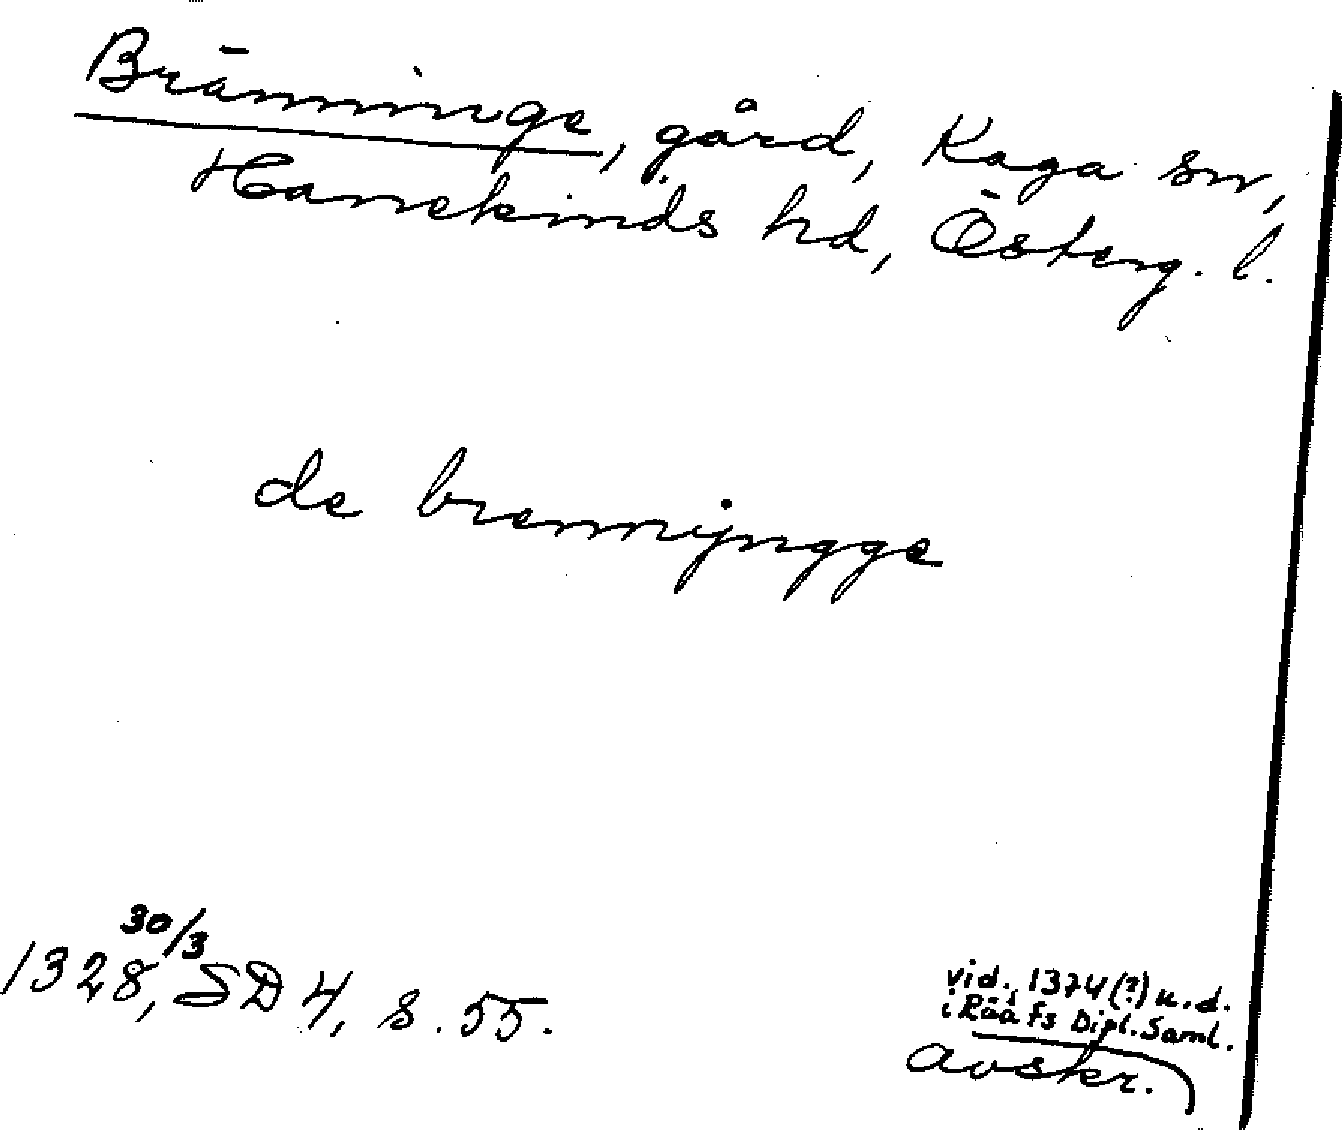 Bränninge, gård, Kaga sn,
Hanekinds hd, Österg. l.
de brennijngge
30/3
1328, SD 4, s. 55.
vid. 1374(?) u.d.
i Rääfs Dipl. Saml.
avskr.